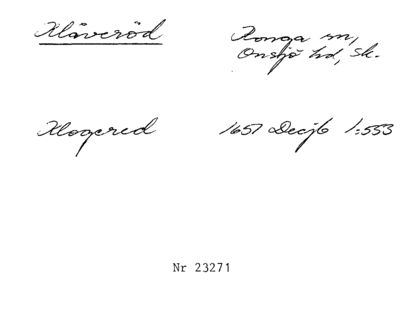 Klåveröd Konga sn,
Onsjö hd, Sk.
Klogered 1657 Decjb 1:553
Nr 23271